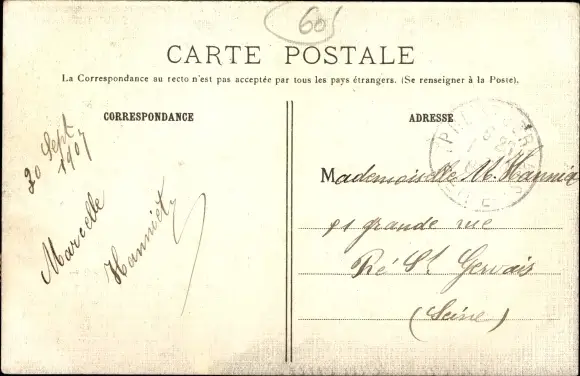 60
CARTE POSTALE
La Correspondance au recto n'est pas acceptée par tous les pays étrangers. (Se renseigner à la Poste).
CORRESPONDANCE
20 Sept
1907
Marcelle
Hanniet
ADRESSE
Mademoiselle M. Hanniet
grande rue
Pré St Gervais
(Seine)